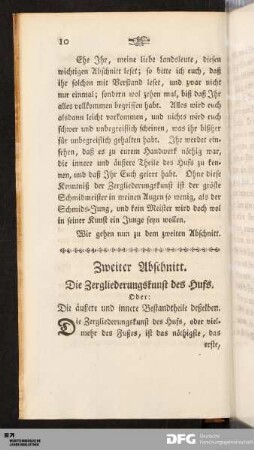 10
Ehe Ihr, meine liebe Landsleute, diesen
wichtigen Abschnitt leset; so bitte ich euch, daß
ihr solchen mit Verstand leset, und zwar nicht
nur einmal; sondern wol zehen mal, biß daß Ihr
alles vollkommen begriffen habt. Alles wird euch
alsdann leicht vorkommen, und nichts wird euch
schwer und unbegreiflich scheinen, was ihr bißher
für unbegreiflich gehalten habt. Ihr werdet ein-
sehen, daß es zu eurem Handwerk nöthig war,
die innere und äussere Theile des Hufs zu ken-
nen, und daß Ihr Euch geirrt habt. Ohne diese
Kenntniß der Zergliederungskunst ist der gröste
Schmidmeister in meinen Augen so wenig, als der
Schmids-Jung, und kein Meister wird doch wol
in seiner Kunst ein Junge seyn wollen.
Wir gehen nun zu dem zweiten Abschnitt.
Zweiter Abschnitt.
Die Zergliederungskunst des Hufs.
Oder:
Die äussere und innere Bestandtheile desselben.
Die Zergliederungskunst des Hufs, oder viel-
mehr des Fußes, ist das nöthigste, das
erste,
DFG Deutsche
Forschungsgemeinschaft